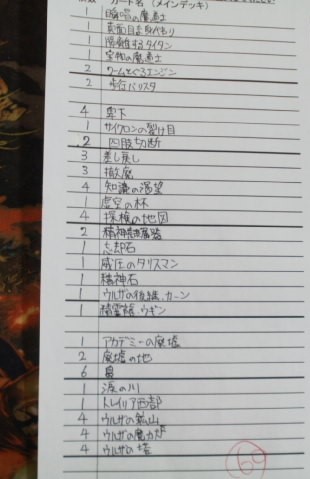 カード名 (メインデッキ)
1 の魔道士
1 真面目な身代わり
1 隔離するタイタン
1 宝物の魔道士
2 ワームとぐろエンジン
2 歩行バリスタ
4 卑下
1 サイクロンの裂け目
2 四肢切断
3 差し戻し
3 撹乱
4 知識の渇望
1 虚空の杯
4 探検の地図
2 精神隷属器
1 忘却石
1 威圧のタリスマン
1 精神石
1 ウルザの後継、カーン
1 精霊龍、ウギン
1 アカデミーの廃墟
2 廃墟の地
6 島
1 涙の川
1 トレイリア西部
4 ウルザの鉱山
4 ウルザの魔力炉
4 ウルザの塔